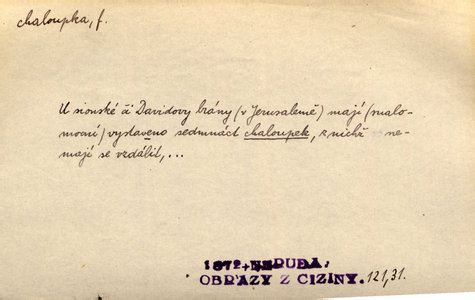 chaloupka, f.
U sionské a Davidovy brány (v Jerusalemě) mají (malo-
mocní) vystavěno sedmnáct chaloupek, z nichž ne-
mají se vzdálit, ...
1872, NERUDA,
OBRAZY Z CIZINY. 121,31.